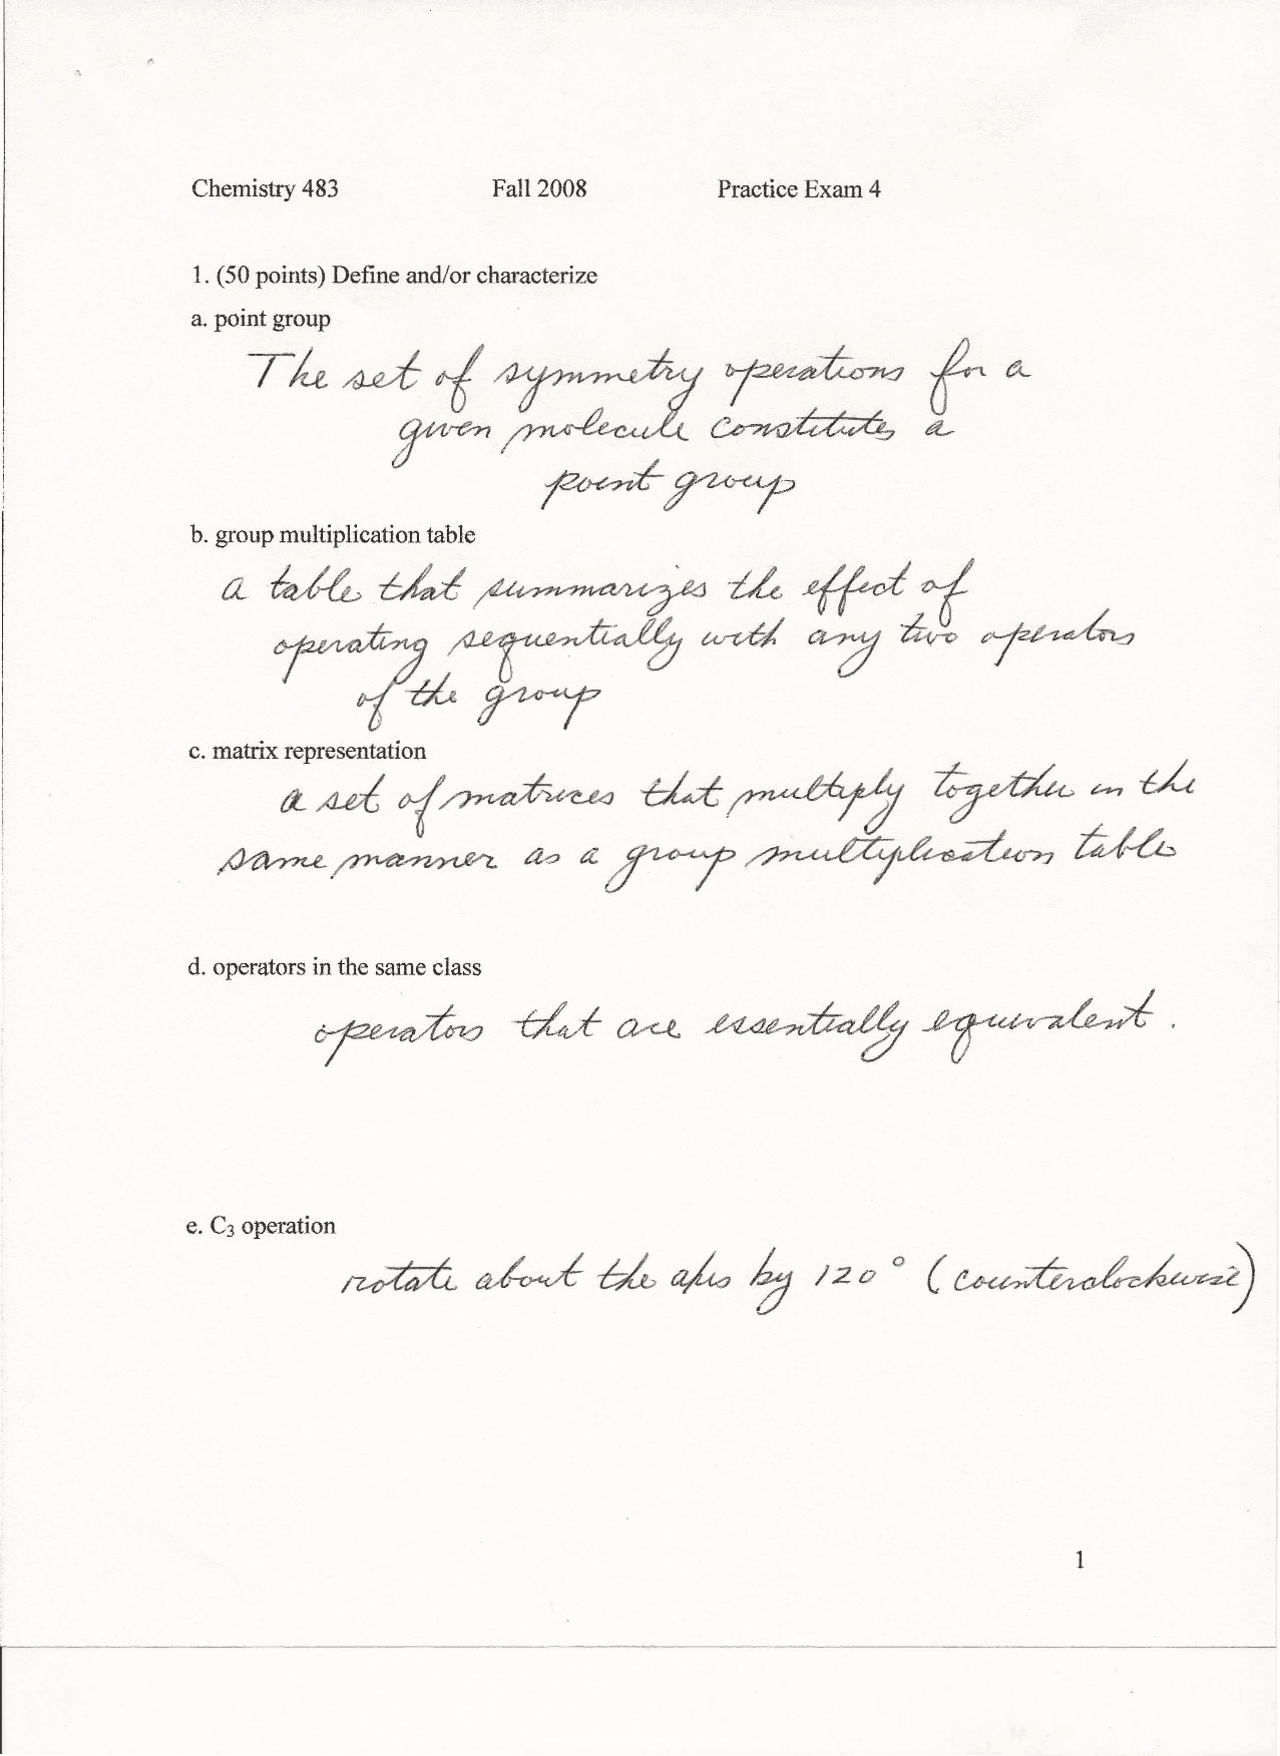 Chemistry 483 Fall 2008 Practice Exam 4
1. (50 points) Define and/or characterize
a. point group
The set of symmetry operations for a
given molecule constitutes a
point group
b. group multiplication table
a table that summarizes the effect of
operating sequentially with any two operators
of the group
c. matrix representation
a set of matrices that multiply together in the
same manner as a group multiplication table
d. operators in the same class
operators that are essentially equivalent.
e. C₃ operation
rotate about the axis by 120° (counterclockwise)
1